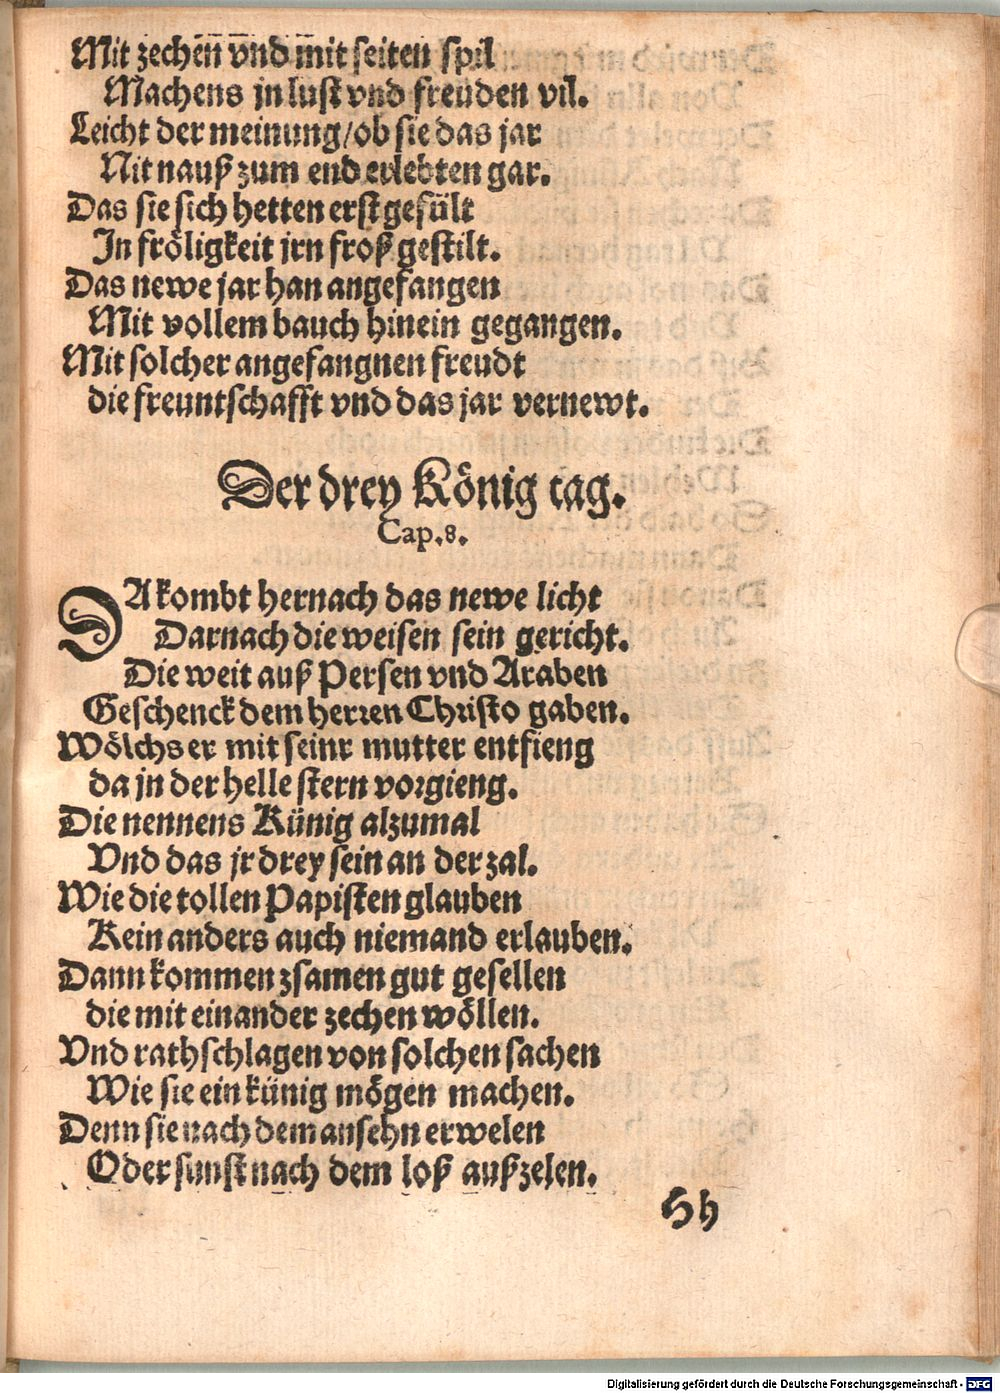 Mit zechen vnd mit seiten spil
Machens jn lust vnd freuden vil.
Leicht der meinung/ob sie das jar
Nit nauß zum end erlebten gar.
Das sie sich hetten erst gefült
In fröligkeit jrn froß gestilt.
Das newe jar han angefangen
Mit vollem bauch hinein gegangen.
Mit solcher angefangnen freudt
die freuntschafft vnd das jar vernewt.
Der drey König tag.
Cap.8.
DA kombt hernach das newe licht
Darnach die weisen sein gericht.
Die weit auß Persen vnd Araben
Geschenck dem herren Christo gaben.
Wölchs er mit seinr mutter entfieng
da jn der helle stern vorgieng.
Die nennens Künig alzumal
Vnd das jr drey sein an der zal.
Wie die tollen Papisten glauben
Kein anders auch niemand erlauben.
Dann kommen zsamen gut gesellen
die mit einander zechen wöllen.
Vnd rathschlagen von solchen sachen
Wie sie ein künig mögen machen.
Denn sie nach dem ansehn erwelen
Oder sunst nach dem loß außzelen.
Hh
Digitalisierung gefördert durch die Deutsche Forschungsgemeinschaft - DFG